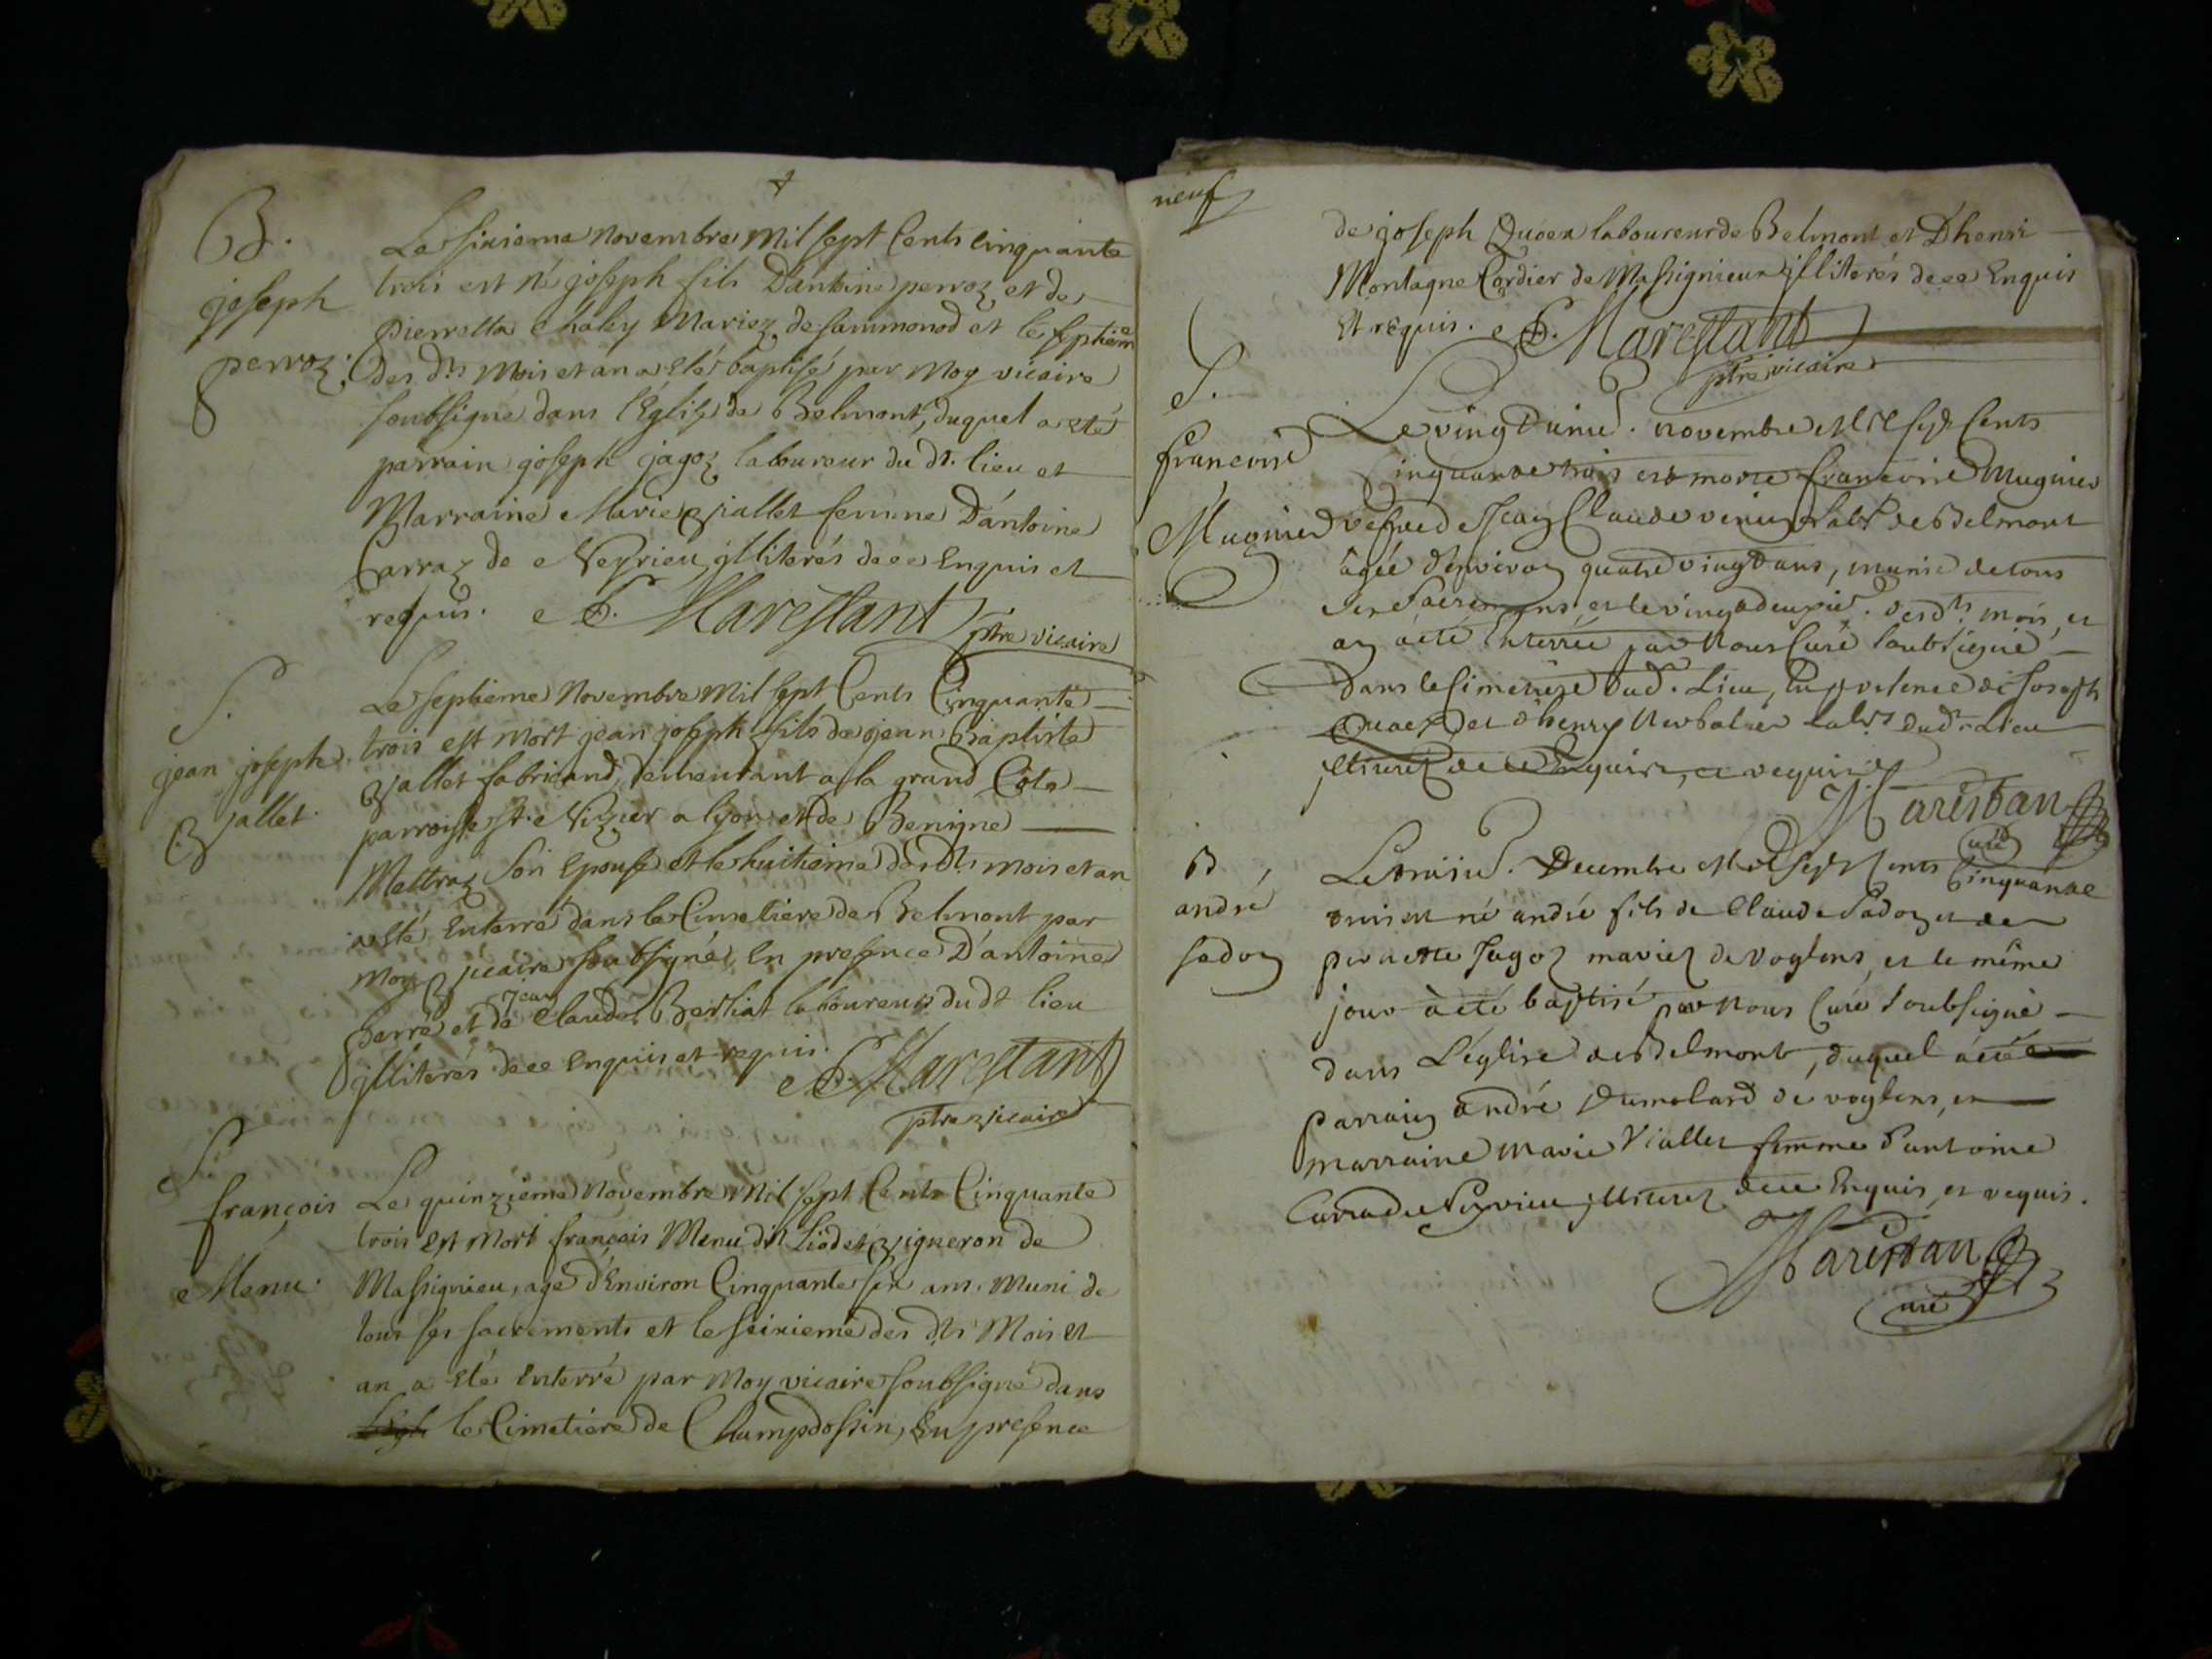 B.
joseph
perroz.
Le sixieme Novembre Mil sept Cents cinquante
trois est né joseph fils D'antoine perroz et de
pierrette chaley Mariez de sammonod et le septiem
des dts Mois et an a eté baptisé par Moy vicaire
soubsigné dans l'Eglise de Belmont, duquel a eté
parrain joseph jagoz laboureur du dt. lieu et
Marraine Marie viallet femme D'antoine
Carraz de Veyrieu jlliterés de ce Enquis et
requis. Marestant ptre vicaire
S.
jean joseph
viallet.
Le septieme Novembre Mil sept Cents Cinquante
trois est mort jean joseph fils de jean Baptiste
viallet fabricand, demeurant a la grand Cote
parroisse st. Nizier a lyon et de Benigne
Mettraz son Epouse et le huitieme des dts Mois et an
a eté Enterré dans le Cimetiere de Belmont par
moy vicaire soubsigné En presence D'antoine
perré et de jean claude Berliat laboureurs du dt lieu
jlliterés de ce Enquis et requis. Marestant
ptre vicaire
françois
Menu.
Le quinzieme Novembre Mil sept Cents Cinquante
trois Est Mort françois Menu dit Liodet vigneron de
Massignieu, agé d'Environ Cinquante six ans. Muni de
tous ses sacrements et le seixieme des dts Mois et
an a eté Enterré par Moy vicaire soubsigné dans
le Cimetiére de Champdossin, En presence
neuf
de joseph Quoex laboureur de Belmont et D'henri
Montagne Cordier de Massignieux jlliterés de ce Enquis
Et requis. Marestant
ptre vicaire
S.
francoise
Mugnier
Le vingt unie. novembre Mil sept Cents
Cinquante trois est morte francoise Mugnier
vefve de Jean Claude labr de Belmont
âgée d'environ quatre vingt ans, munie de tous
ses Sacremens et le vingt deuxie. desdts mois, et
an a été Enterrée par Nous Curé soubsigné
dans le Cimetiere dud. Lieu, En presence de Joseph
Quoex, et d'henry labrs dudt Lieu
jlliterez de ce Enquis, et requis
Marestan
curé
B
andré
sadoz
Le troisie. Decembre Mil sept Cents Cinquante
trois est né andré fils de Claude Sadoz et de
pernette Jagoz mariez de Voglens, et le même
jour a été baptisé par Nous Curé soubsigné
dans L'église de Belmont, duquel a été
parrain andré Dumolard de voglens, et
marraine marie Viallet femme d'antoine
Carra de Veyrieu jlliterez de ce Enquis, et requis.
Marestan
curé